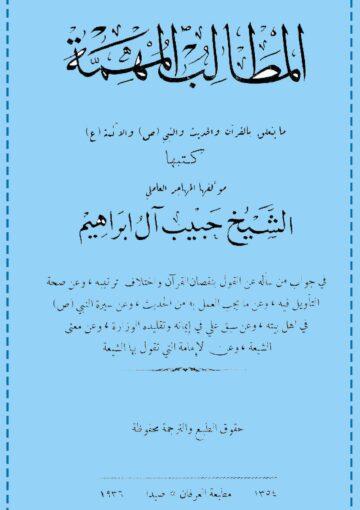 المطالب المهمة
ما يتعلق بالقرآن والحديث والنبي (ص) والأئمة (ع)
كتبها
مؤلفها المهاجر العاملي
الشيخ حبيب آل ابراهيم
في جواب من سأله عن القول بنقصان القرآن واختلاف ترتيبه ، وعن صحة
التأويل فيه ، وعن ما يجب العمل به من الحديث ، وعن سيرة النبي (ص)
في اهل بيته ، وعن سبق علي في إيمانه وتقليده الوزارة ، وعن معنى
الشيعة ، وعن الإمامة التي تقول بها الشيعة
حقوق الطبع والترجمة محفوظة
١٣٥٤ مطبعة العرفان ٥ صيدا ١٩٣٦